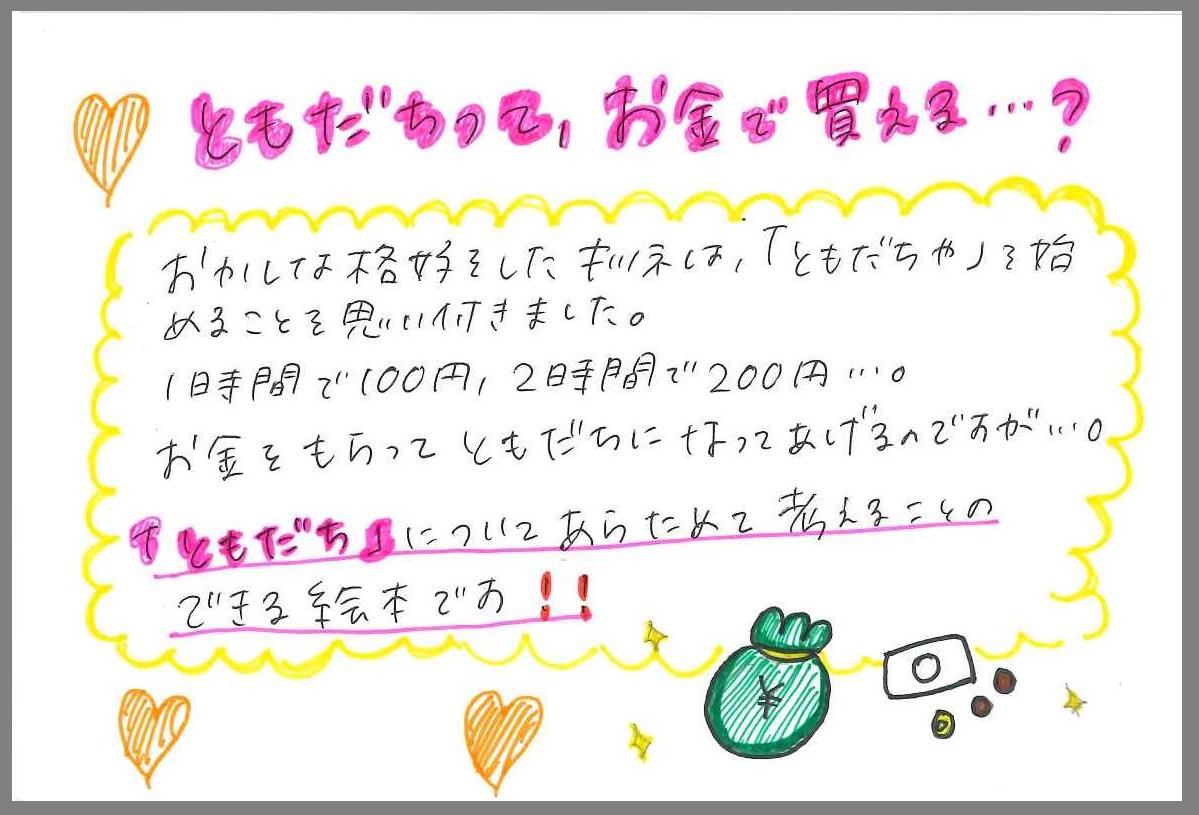 ともだちって, お金で買える…?
おかしな格好をしたキツネは,「ともだちや」を始
めることを思い付きました。
1時間で100円, 2時間で200円…。
お金をもらってともだちになってあげるのですが…。
「ともだち」についてあらためて考えることの
できる絵本です!!
¥